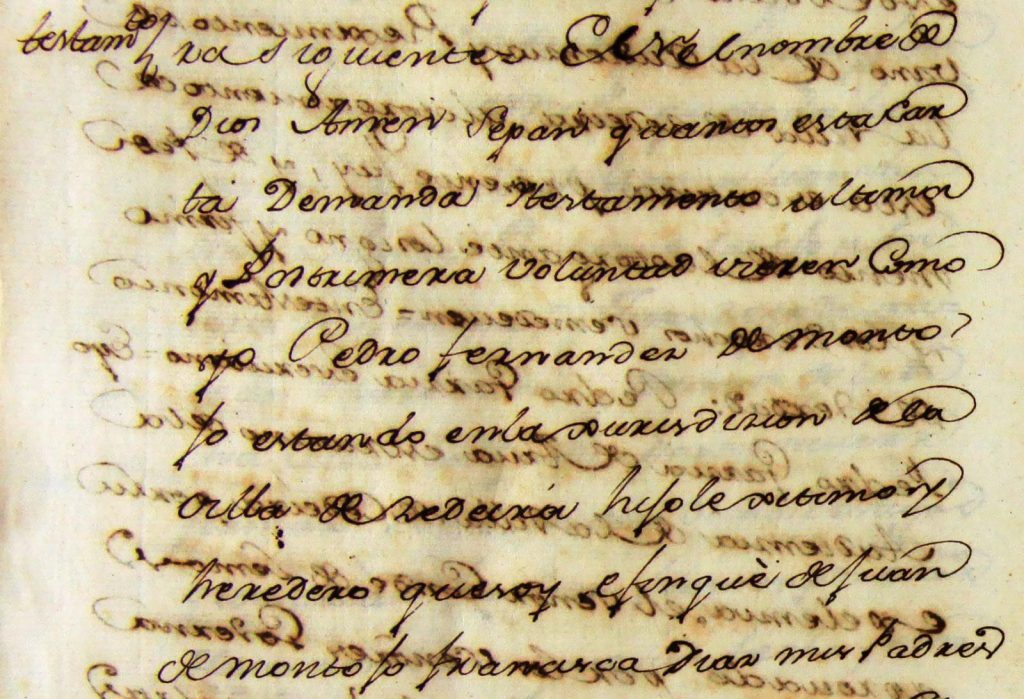 testamto
ra siguientes El Nre el nombre de
Dios Amen Sepan quantos esta Car
ta Demanda testamento ultima
y Postrimera Voluntad vieren Como
yo Pedro fernandez de monto
so estando en la xurisdizion de la
villa de redeira hijo lexitimo y
heredero que soy e finquè de Juan
de montoso francisca Diaz mis Padres